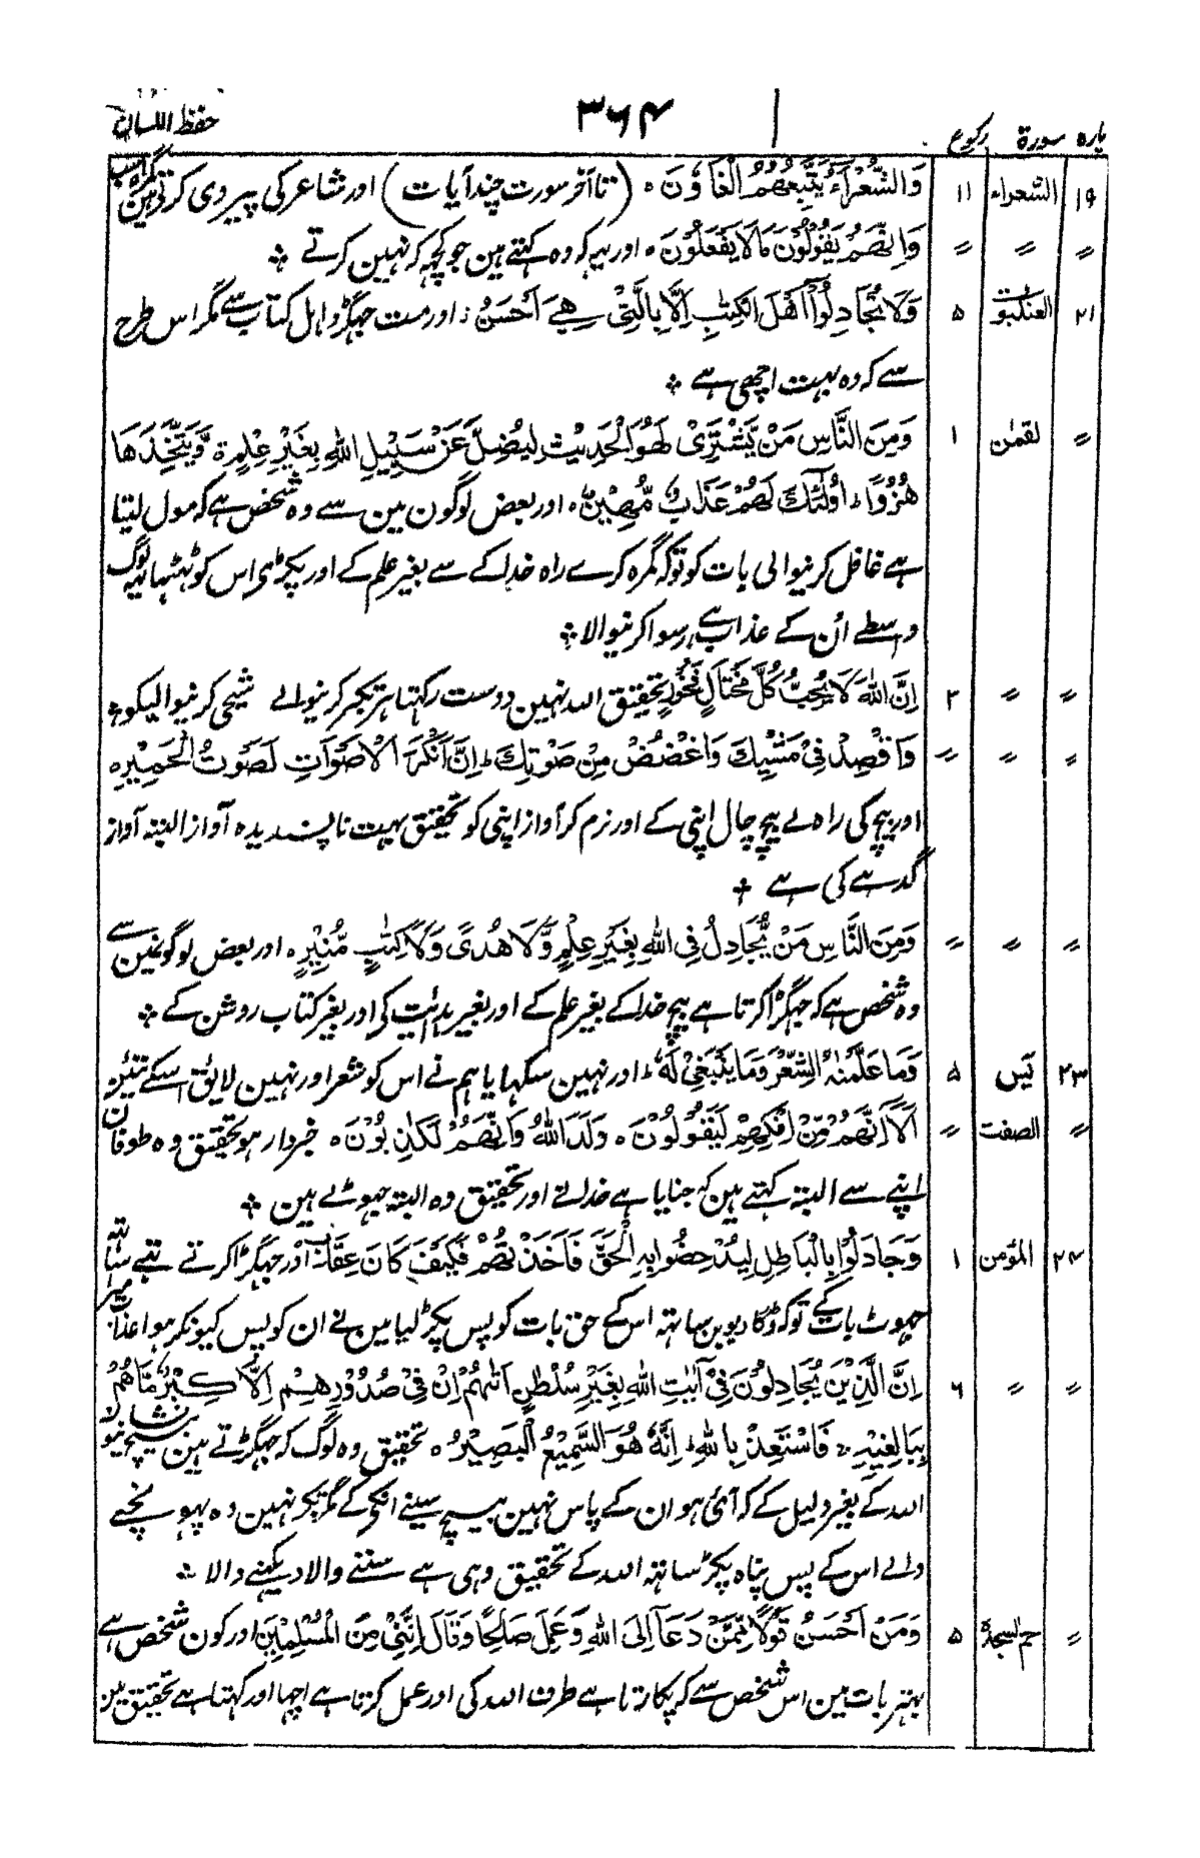 پارہ سورۃ رکوع ۳۶۴ حفظ اللسان
۱۹ الشعراء ۱۱ وَالشُّعَرَآءُ يَتَّبِعُهُمُ الْغَاوٗنَ ہ (تا آخر سورت چند آیات) اور شاعر کی پیروی کرتے ہین گمراہ سب
〃 〃 〃 وَاَنَّهُمْ يَقُوْلُوْنَ مَا لَا يَفْعَلُوْنَ ہ اور یہ کہ وہ کہتے ہین جو کچہہ کہ نہین کرتے ÷
۲۱ العنکبوت ۵ وَلَا تُجَادِلُوْٓا اَهْلَ الْكِتٰبِ اِلَّا بِالَّتِيْ هِيَ اَحْسَنُ : اور مت جہگڑو اہل کتاب سے مگر اس طرح
سے کہ وہ بہت اچھی ہے ÷
〃 لقمٰن ۱ وَمِنَ النَّاسِ مَنْ يَّشْتَرِيْ لَهْوَ الْحَدِيْثِ لِيُضِلَّ عَنْ سَبِيْلِ اللّٰهِ بِغَيْرِ عِلْمٍ ۃ وَّيَتَّخِذَهَا
هُزُوًا ط اُولٰٓئِكَ لَهُمْ عَذَابٌ مُّهِيْنٌ ہ اور بعض لوگون مین سے وہ شخص ہے کہ مول لیتا
ہے غافل کرنیوالی بات کو تو کہ گمرہ کرے راہ خدا کے سے بغیر علم کے اور پکڑے اس کو ٹہٹہا یہ لوگ
واسطے اُن کے عذاب ہے رسوا کرنیوالا ÷
〃 〃 ۲ اِنَّ اللّٰهَ لَا يُحِبُّ كُلَّ مُخْتَالٍ فَخُوْرٍ تحقیق اللہ نہین دوست رکہتا ہر تکبر کرنیوالے شیخی کرنیوالیکو ÷
〃 〃 〃 وَاقْصِدْ فِيْ مَشْيِكَ وَاغْضُضْ مِنْ صَوْتِكَ ط اِنَّ اَنْكَرَ الْاَصْوَاتِ لَصَوْتُ الْحَمِيْرِ ہ
اور بیچ کی راہ لے بیچ چال اپنی کے اور نرم کر آواز اپنی کو تحقیق بہت ناپسندیدہ آواز البتہ آواز
گدہے کی ہے ÷
〃 〃 〃 وَمِنَ النَّاسِ مَنْ يُّجَادِلُ فِي اللّٰهِ بِغَيْرِ عِلْمٍ وَّلَا هُدًى وَّلَا كِتٰبٍ مُّنِيْرٍ ہ اور بعض لوگونمین سے
وہ شخص ہے کہ جہگڑا کرتا ہے بیچ خدا کے بغیر علم کے اور بغیر ہدائیت کی اور بغیر کتاب روشن کے ÷
۲۳ یٰسٓ ۵ وَمَا عَلَّمْنٰهُ الشِّعْرَ وَمَا يَنْبَغِيْ لَهٗ ط اور نہین سکہایا ہم نے اس کو شعر اور نہین لایق اسکے تئین
〃 الصفت 〃 اَلَآ اِنَّهُمْ مِّنْ اِفْكِهِمْ لَيَقُوْلُوْنَ ہ وَلَدَ اللّٰهُ وَاِنَّهُمْ لَكٰذِبُوْنَ ہ خبردار ہو تحقیق وہ طوفان
اپنے سے البتہ کہتے ہین کہ جنایا ہے خدا نے اور تحقیق وہ البتہ جہوٹے ہین ÷
۲۴ المؤمن ۱ وَجَادَلُوْا بِالْبَاطِلِ لِيُدْحِضُوْا بِهِ الْحَقَّ فَاَخَذْتُهُمْ فَكَيْفَ كَانَ عِقَابِ اور جہگڑا کرتے تہے ساتہہ
جہوٹ بات کے تو کہ ڈگا دیوین ساتہہ اس کے حق بات کو پس پکڑ لیا مین نے ان کو پس کیونکر ہوا عذاب میرا
〃 〃 ۶ اِنَّ الَّذِيْنَ يُجَادِلُوْنَ فِيْٓ اٰيٰتِ اللّٰهِ بِغَيْرِ سُلْطٰنٍ اَتٰىهُمْ اِنْ فِيْ صُدُوْرِهِمْ اِلَّا كِبْرٌ مَّا هُمْ
بِبَالِغِيْهِ ۚ فَاسْتَعِذْ بِاللّٰهِ ط اِنَّهٗ هُوَ السَّمِيْعُ الْبَصِيْرُ ہ تحقیق وہ لوگ کہ جہگڑتے ہین بیچ نشانیو
اللہ کے بغیر دلیل کے کہ آئی ہو ان کے پاس نہین بیچ سینے انکی کے مگر تکبر نہین وہ پہونچنے
والے اس کے پس پناہ پکڑ ساتہہ اللہ کے تحقیق وہی ہے سننے والا دیکہنے والا ÷
〃 حٰم السجدۃ ۵ وَمَنْ اَحْسَنُ قَوْلًا مِّمَّنْ دَعَآ اِلَى اللّٰهِ وَعَمِلَ صَالِحًا وَّقَالَ اِنَّنِيْ مِنَ الْمُسْلِمِيْنَ اور کون شخص ہے
بہتر بات مین اس شخص سے کہ پکارتا ہے طرف اللہ کی اور عمل کرتا ہے اچہا اور کہتا ہے تحقیق مین